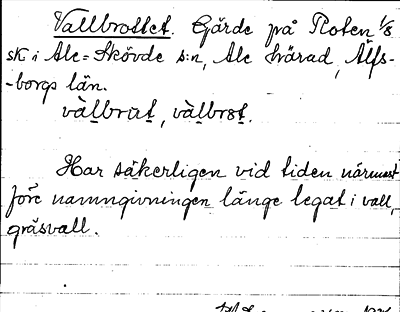 Vallbrottet. Gärde på Roten 1/8
sk i Ale=Skövde s:n, Ale härad, Älfs-
-borgs län.
vàlbrùt, vàlbrot.
Har säkerligen vid tiden närmast
före namngivningen länge legat i vall,
gräsvall.